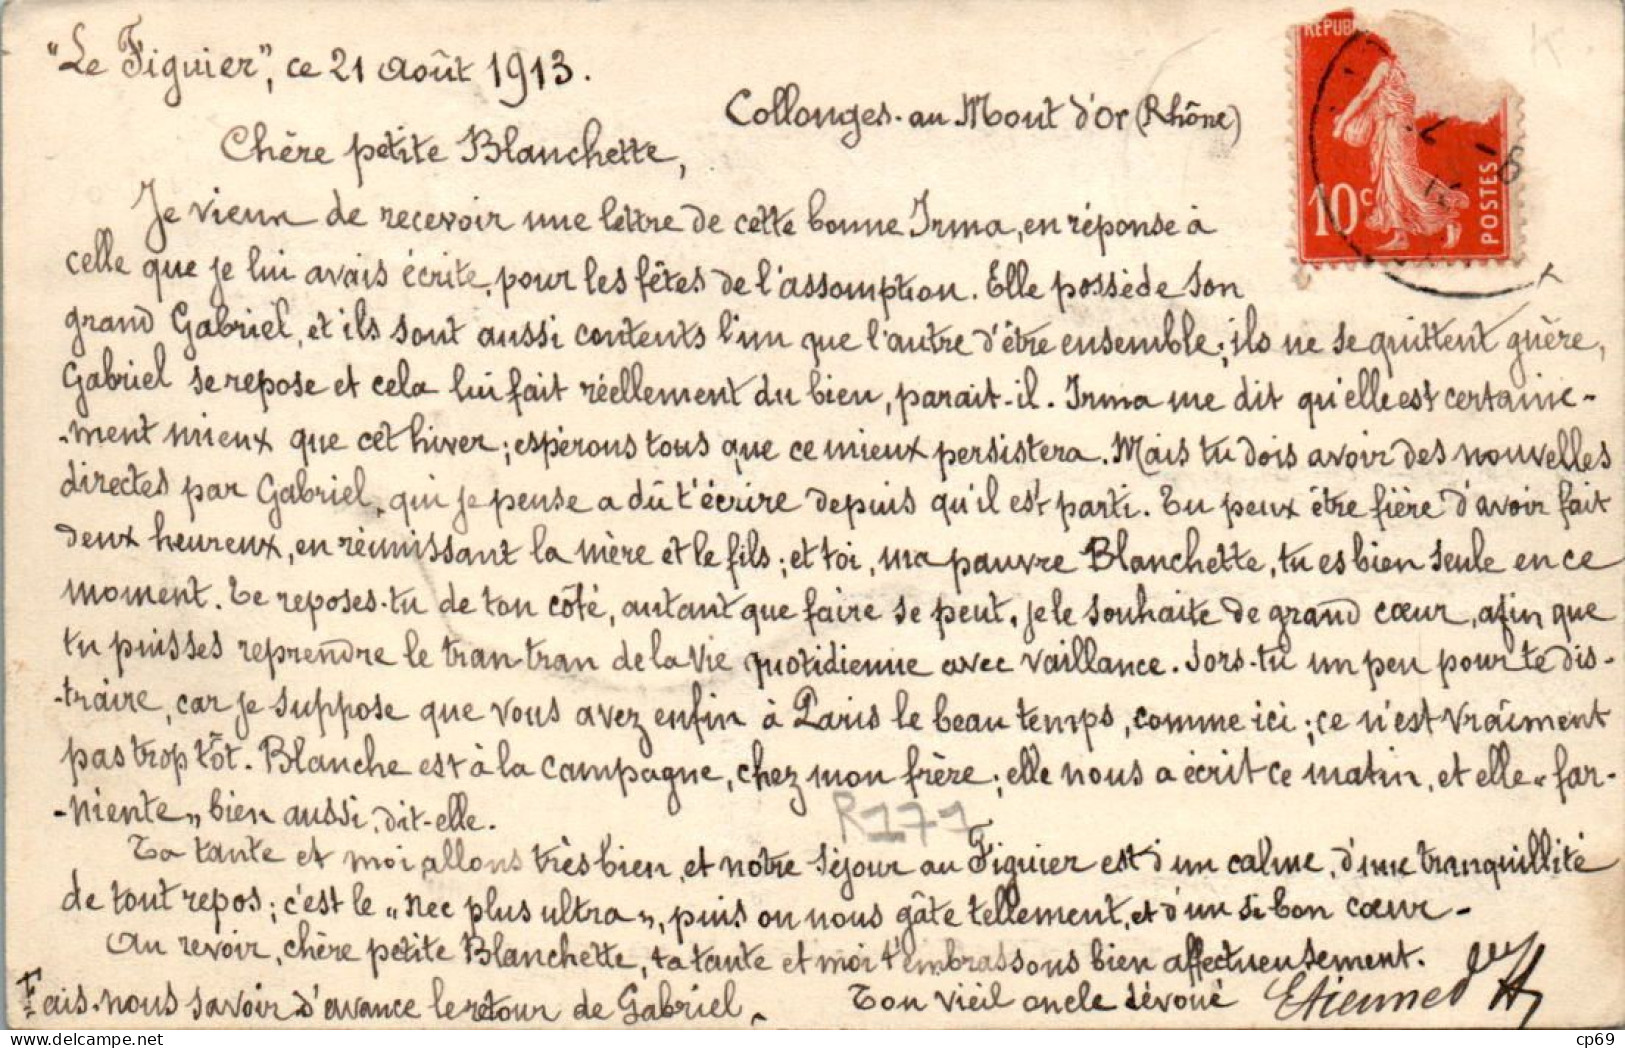 "Le Figuier", ce 21 Août 1913.
Collonges-au Mont d'Or (Rhône)
Chère petite Blanchette,
Je viens de recevoir une lettre de cette bonne Irma, en réponse à
celle que je lui avais écrite, pour les fêtes de l'assomption. Elle possède son
grand Gabriel, et ils sont aussi contents l'un que l'autre d'être ensemble; ils ne se quittent guère,
Gabriel se repose et cela lui fait réellement du bien, parait-il. Irma me dit qu'elle est certaine-
-ment mieux que cet hiver; espérons tous que ce mieux persistera. Mais tu dois avoir des nouvelles
directes par Gabriel, qui je pense a dû t'écrire depuis qu'il est parti. Tu peux être fière d'avoir fait
deux heureux, en réunissant la mère et le fils; et toi, ma pauvre Blanchette, tu es bien seule en ce
moment. Te reposes-tu de ton côté, autant que faire se peut, je le souhaite de grand cœur, afin que
tu puisses reprendre le tran-tran de la vie quotidienne avec vaillance. Sors-tu un peu pour te dis-
-traire, car je suppose que vous avez enfin à Paris le beau temps, comme ici; ce n'est vraiment
pas trop tôt. Blanche est à la campagne, chez mon frère; elle nous a écrit ce matin, et elle «far-
-niente» bien aussi, dit-elle.
R171
Ta tante et moi allons très bien, et notre séjour au Figuier est d'un calme, d'une tranquillité
de tout repos; c'est le «nec plus ultra», puis on nous gâte tellement, et d'un si bon cœur-
Au revoir, chère petite Blanchette, ta tante et moi t'embrassons bien affectueusement.
Fais-nous savoir d'avance le retour de Gabriel. Ton vieil oncle dévoué Etienne
REPUB
10c
POSTES
cp69